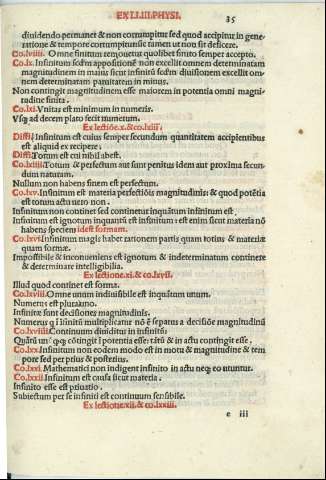 EX LI.III.PHYSI.
35
diuidendo permanet & non corrumpitur sed quod accipitur in gene
ratione & tempore corrumpitur: sic tamen ut non sit deficere.
Co.lviiii. Omne finitum remouetur quolibet finito semper accepto.
Co.lx. Infinitum secundum appositionē non excellit omnem determinatam
magnitudinem in maius sicut infinitū secundum diuisionem excellit om
nem determinatam paruitatem in minus.
Non contingit magnitudinem esse maiorem in potentia omni magni
tudine finita.
Co.lxi. Vnitas est minimum in numeris.
Vsq; ad decem plato fecit numerum.
Ex lectiōe.x.& co.lxiii.
Diffi. Infinitum est cuius semper secundum quantitatem accipientibus
est aliquid ex recipere;
Diffi. Totum est cui nihil abest.
Co.lxiiii. Totum & perfectum aut sunt penitus idem aut proxima secun
dum naturam.
Nullum non habens finem est perfectum.
Co.lxv. Infinitum est materia perfectiōis magnitudinis: & quod potētia
est totum actu uero non.
Infinitum non continet sed continetur inquātum infinitum est.
Infinitum est ignotum inquantū est infinitum: est enim sicut materia nō
habens speciem idest formam.
Co.lxvi. Infinitum magis habet rationem partis quam totius & materiæ
quam formæ.
Impossibile & inconueniens est ignotum & indeterminatum continere
& determinare intelligibilia.
Ex lectione.xi.& co.lxvii.
Illud quod continet est forma.
Co.lxviii. Omne unum indiuisibile est inquātum unum.
Numerus est plura uno.
Infinitæ sunt decisiones magnitudinis.
Numerus q̄ ī īfinitū multiplicatur nō ē separatus a decisiōe magnitudinū
Co.lxviiii. Continuum diuiditur in infinitū:
Quātū un° q̄q; cōtingit ī potentia esse: tātū & in actu contingit esse.
Co.lxx. Infinitum non eodem modo est in motu & magnitudine & tem
pore sed per prius & posterius.
Co.lxxi. Mathematici non indigent infinito in actu neq; eo utuntur.
Co.lxxii. Infinitum est causa sicut materia.
Infinito esse est priuatio.
Subiectum per se infiniti est continuum sensibile.
Ex lectiōe.xii.& co.lxxiii.
e iii